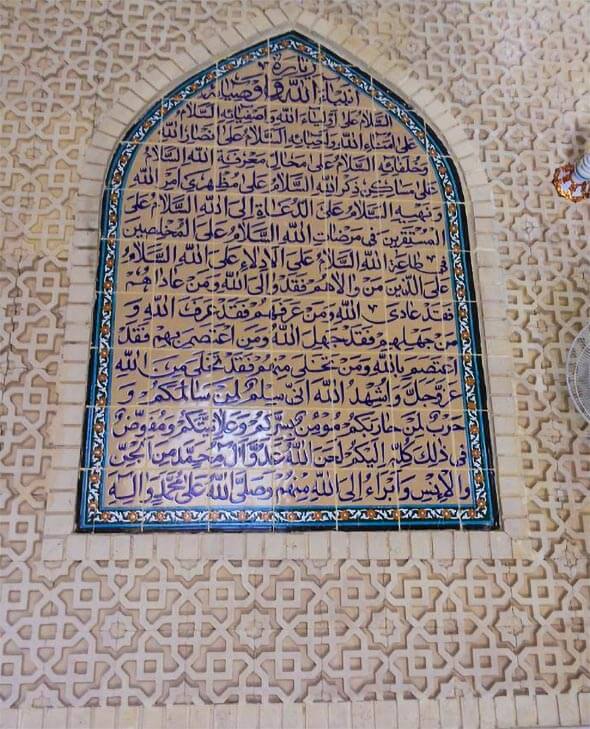 زيارة
انبياء الله و اوصيائه
السلام على اولياء الله واصفيائه السلام
على امناء الله واحبائه السلام على انصار الله
وخلفائه السلام على محال معرفة الله السلام
على مساكن ذكر الله السلام على مظهري امر الله
ونهيه السلام على الدعاة الى الله السلام على
المستقرين في مرضات الله السلام على المخلصين
في طاعة الله السلام على الادلاء على الله السلام
على الذين من والاهم فقد والى الله ومن عاداهم
فقد عادى الله ومن عرفهم فقد عرف الله و
من جهلهم فقد جهل الله ومن اعتصم بهم فقد
اعتصم بالله ومن تخلى منهم فقد تخلى من الله
عز وجل و اشهد الله اني سلم لمن سالمكم و
حرب لمن حاربكم مومن بسركم وعلانيتكم ومفوض
في ذلك كله اليكم لعن الله عدو آل محمد من الجن
والانس وابرء الى الله منهم وصلى الله على محمد واله